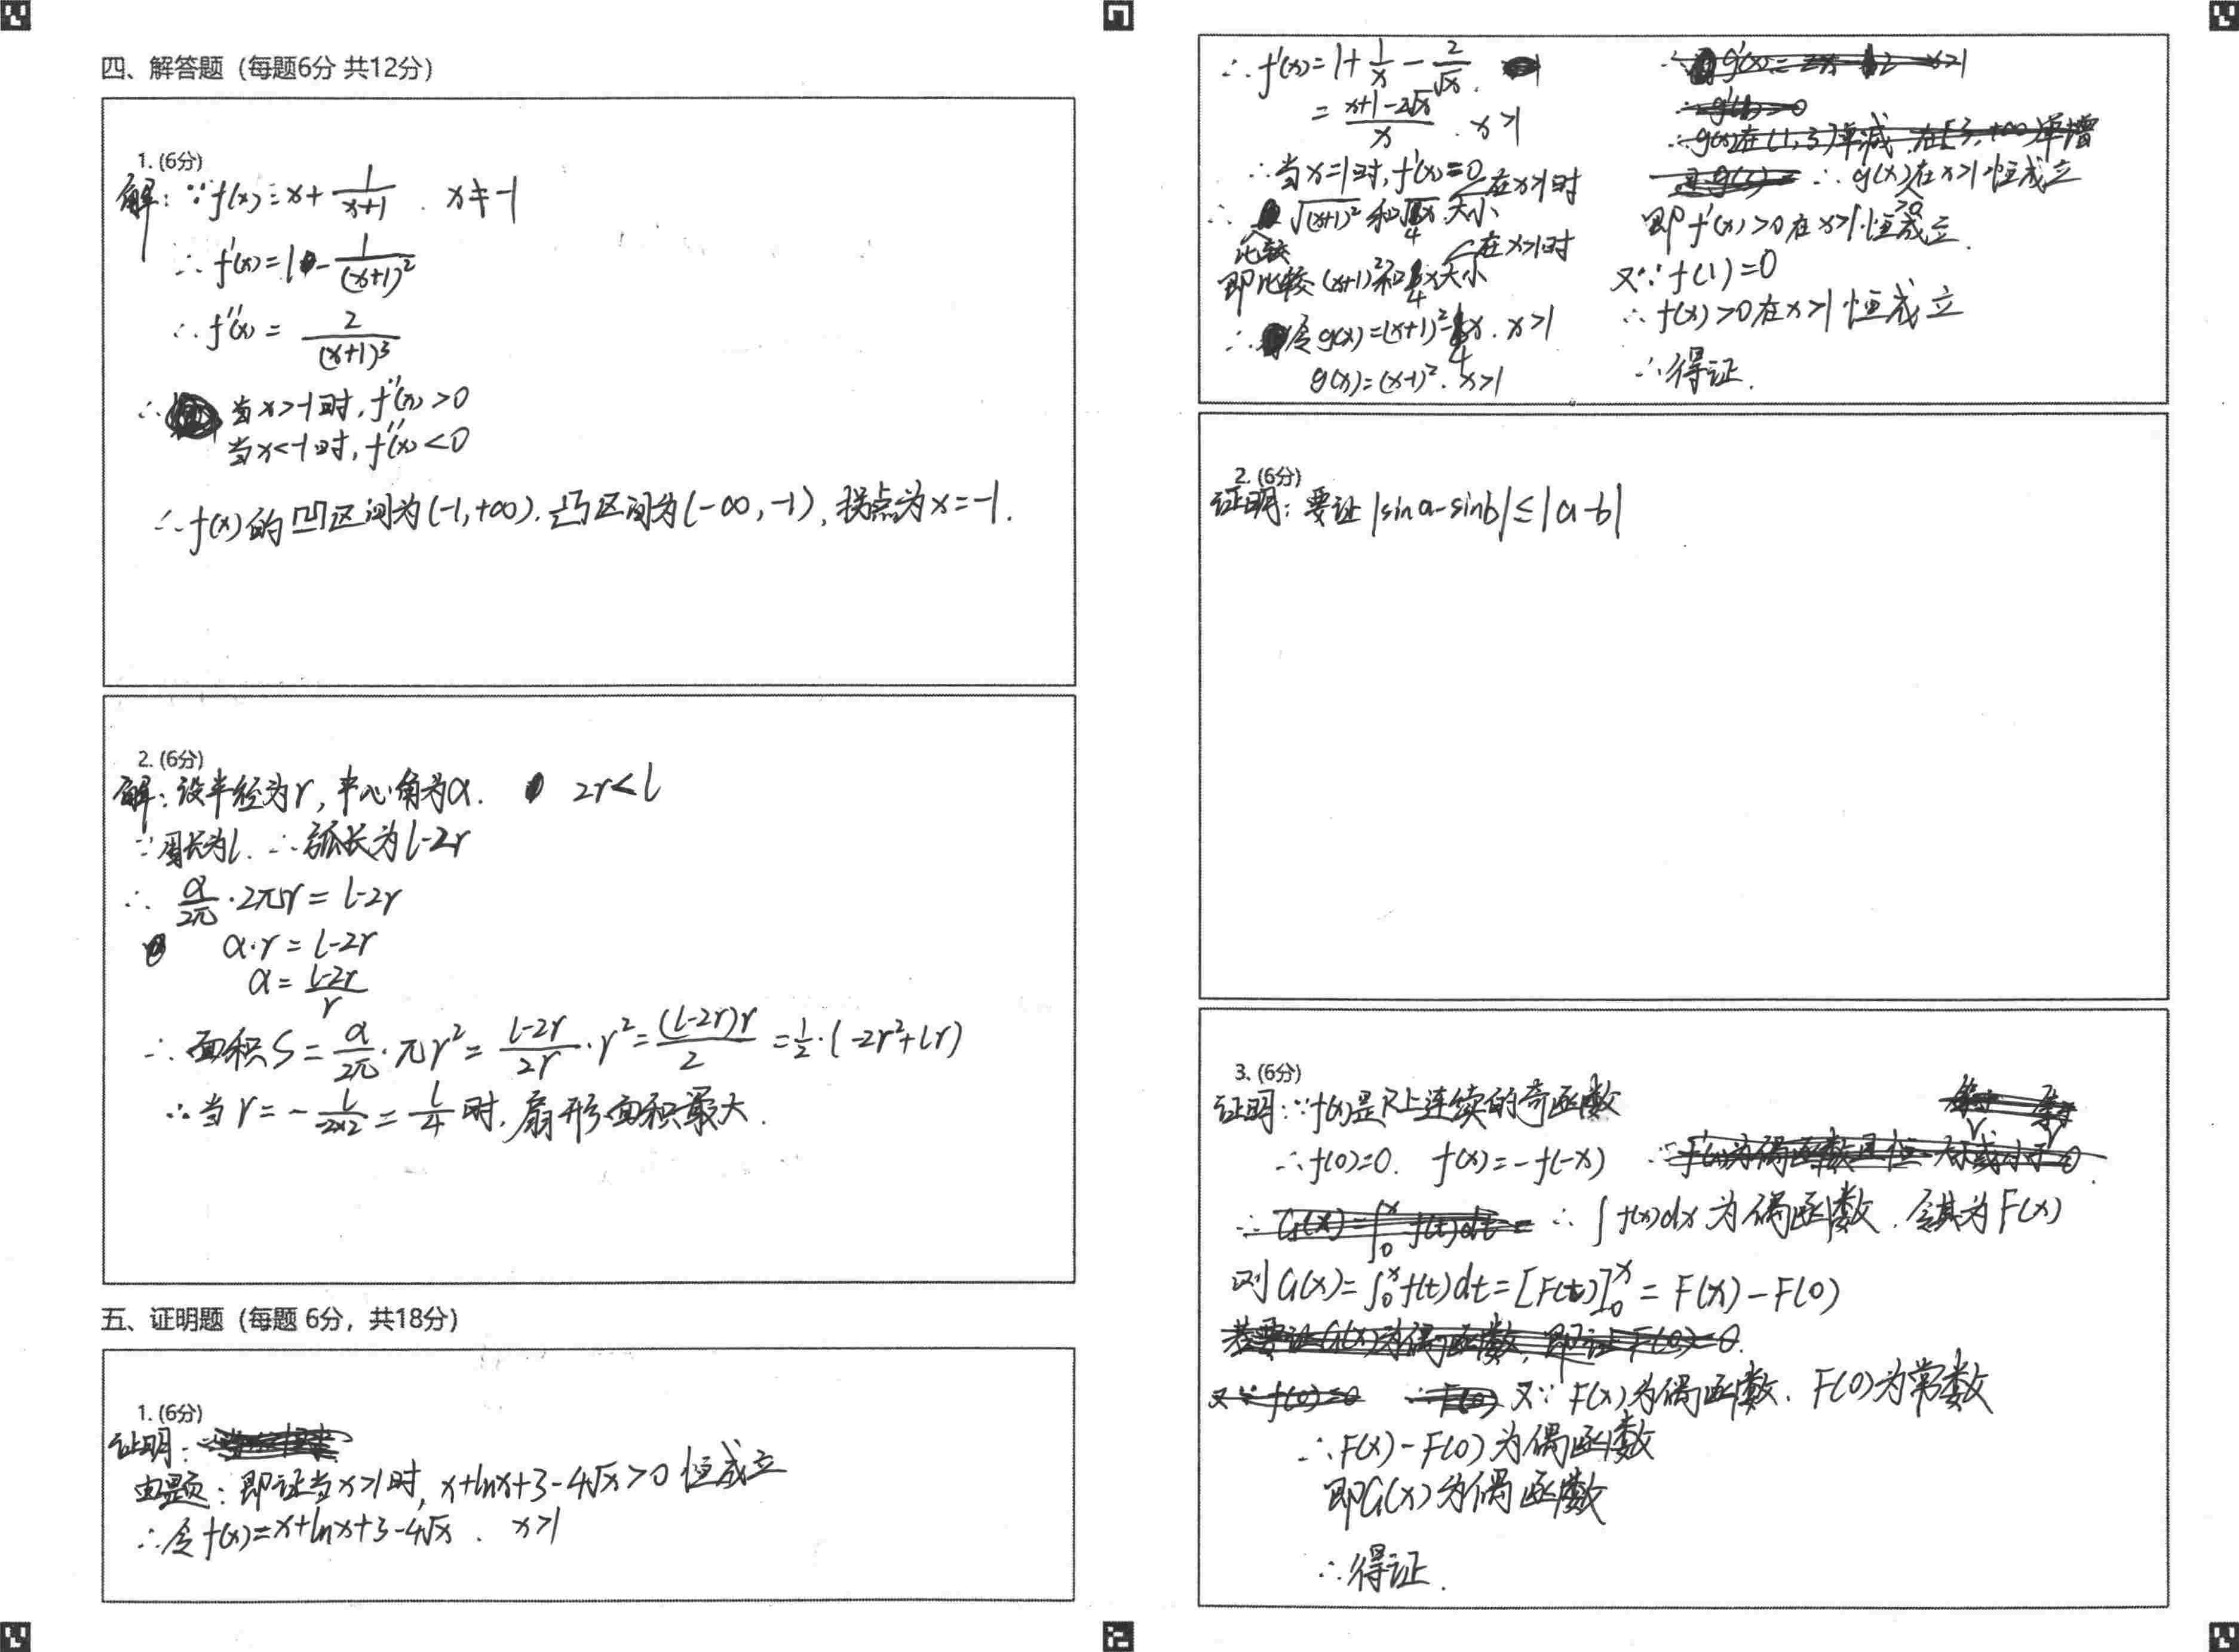 四、解答题（每题6分 共12分）
1. (6分)
解：∵f(x)=x+1/(x+1) . x≠-1
∴f'(x)=1-1/(x+1)²
∴f''(x)=2/(x+1)³
∴当x>-1时,f''(x)>0
当x<-1时,f''(x)<0
∴f(x)的凹区间为(-1,+∞).凸区间为(-∞,-1),拐点为x=-1.
2. (6分)
解：设半径为r,中心角为α. 2r<l
∵周长为l.∴弧长为l-2r
∴ α/2π·2πr=l-2r
α·r=l-2r
α=(l-2r)/r
∴面积S=α/2π·πr²=(l-2r)/2r·r²=(l-2r)r/2=1/2·(-2r²+lr)
∴当r=-l/(-2×2)=l/4时,扇形面积最大.
五、证明题（每题 6分，共18分）
1. (6分)
证明：
由题：即证当x>1时,x+lnx+3-4√x>0恒成立
∴令f(x)=x+lnx+3-4√x . x>1
∴f'(x)=1+1/x-2/√x.
=(x+1-2√x)/x . x>1
∴当x=1时,f'(x)=0
∴比较√(x+1)²和√4x大小 在x>1时
即比较(x+1)²和4x大小 在x>1时
∴令g(x)=(x+1)²-4x . x>1
g(x)=(x-1)². x>1
∴g(x)>0在x>1恒成立
即f'(x)>0在x>1恒成立.
又∵f(1)=0
∴f(x)>0在x>1恒成立
∴得证.
2. (6分)
证明：要证|sina-sinb|≤|a-b|
3. (6分)
证明：∵f(x)是R上连续的奇函数
∴f(0)=0. f(x)=-f(-x)
∴∫f(x)dx为偶函数.令其为F(x)
则G(x)=∫₀ˣf(t)dt=[F(t)]₀ˣ=F(x)-F(0)
又∵F(x)为偶函数.F(0)为常数
∴F(x)-F(0)为偶函数
即G(x)为偶函数
∴得证.